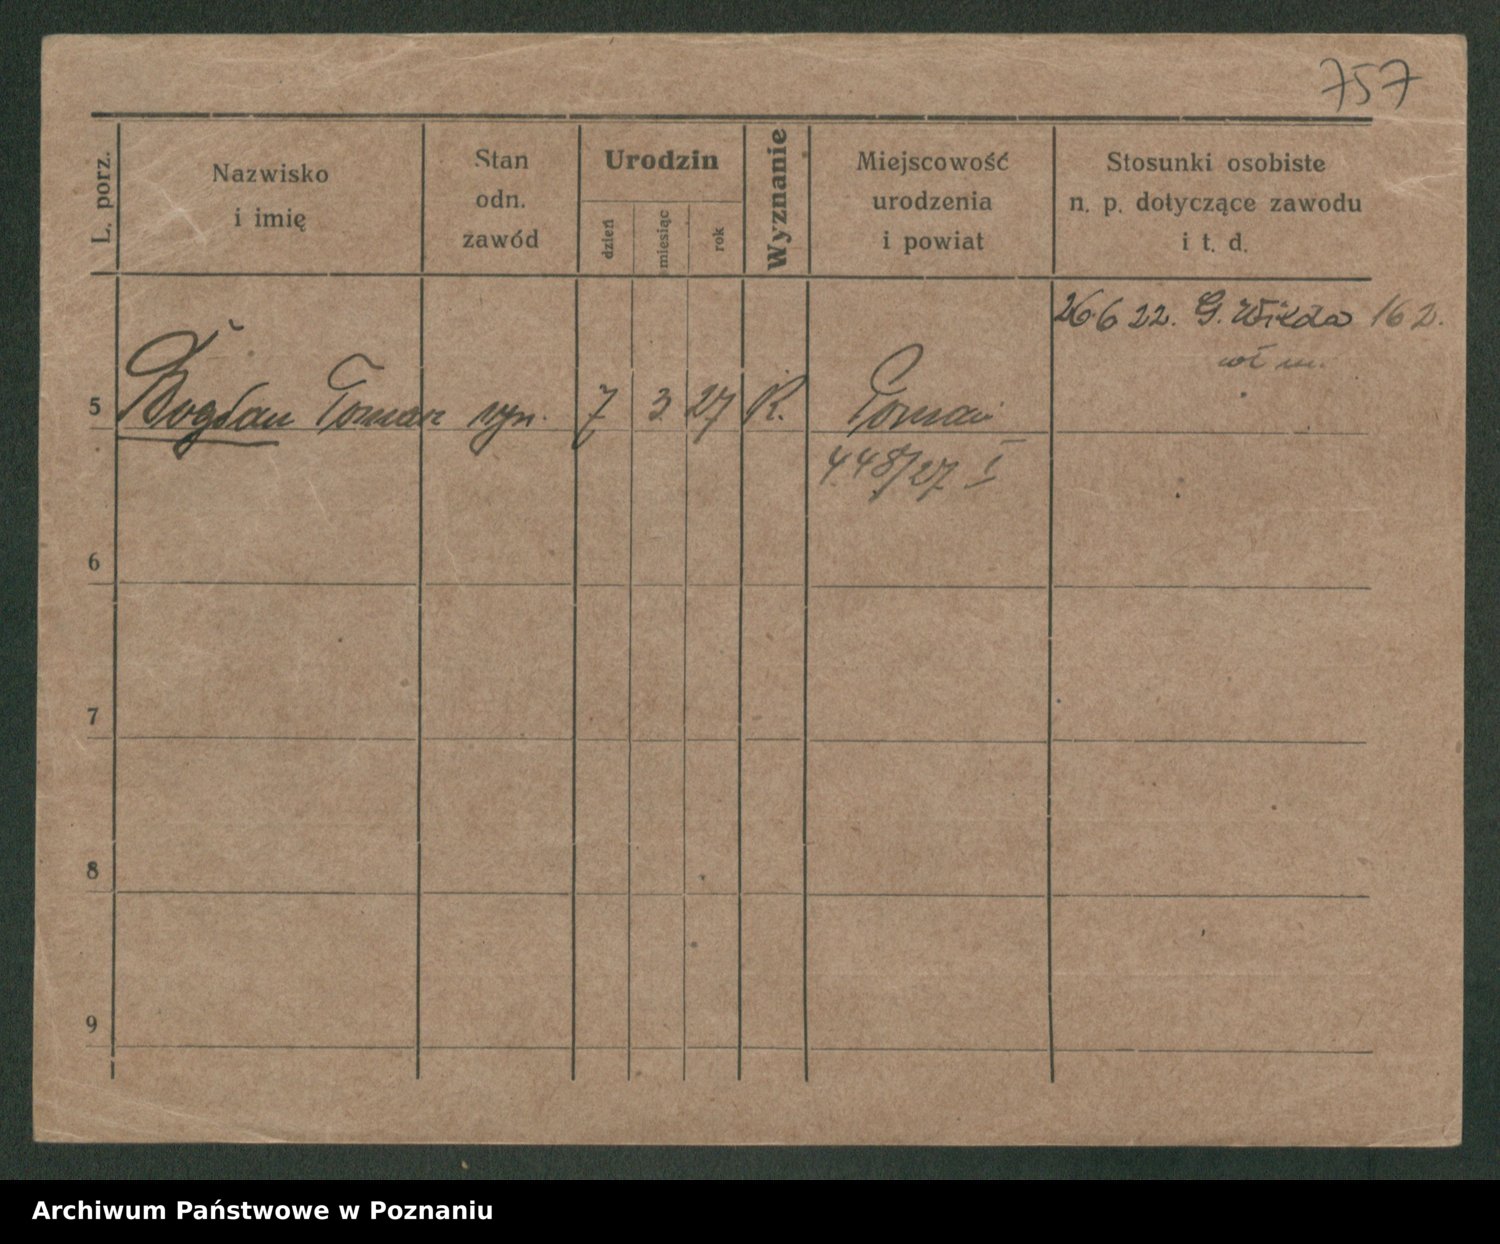 757
L. porz.
Nazwisko
i imię
Stan
odn.
zawód
Urodzin
dzień
miesiąc
rok
Wyznanie
Miejscowość
urodzenia
i powiat
Stosunki osobiste
n. p. dotyczące zawodu
i t. d.
26 6 22. G. Wilda 162.
5 Bogdan Roman syn. 7 3 27 R. Poznań
448/27 I
6
7
8
9
Archiwum Państwowe w Poznaniu